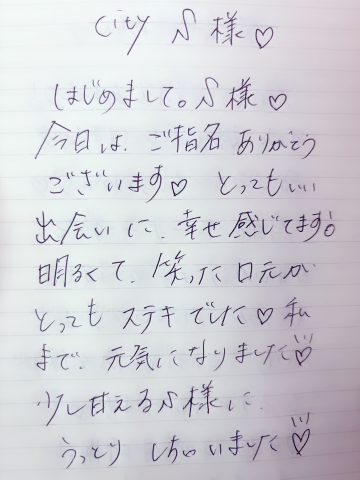 City S 様♡
はじめまして。S 様♡
今日は、ご指名 ありがとう
ございます♡ とってもいい
出会いに、幸せ 感じてます!
明るくて、笑った口元が
とっても ステキ でした♡ 私
まで、元気になりました♡
少し甘える S 様に、
うっとり しちゃいました♡